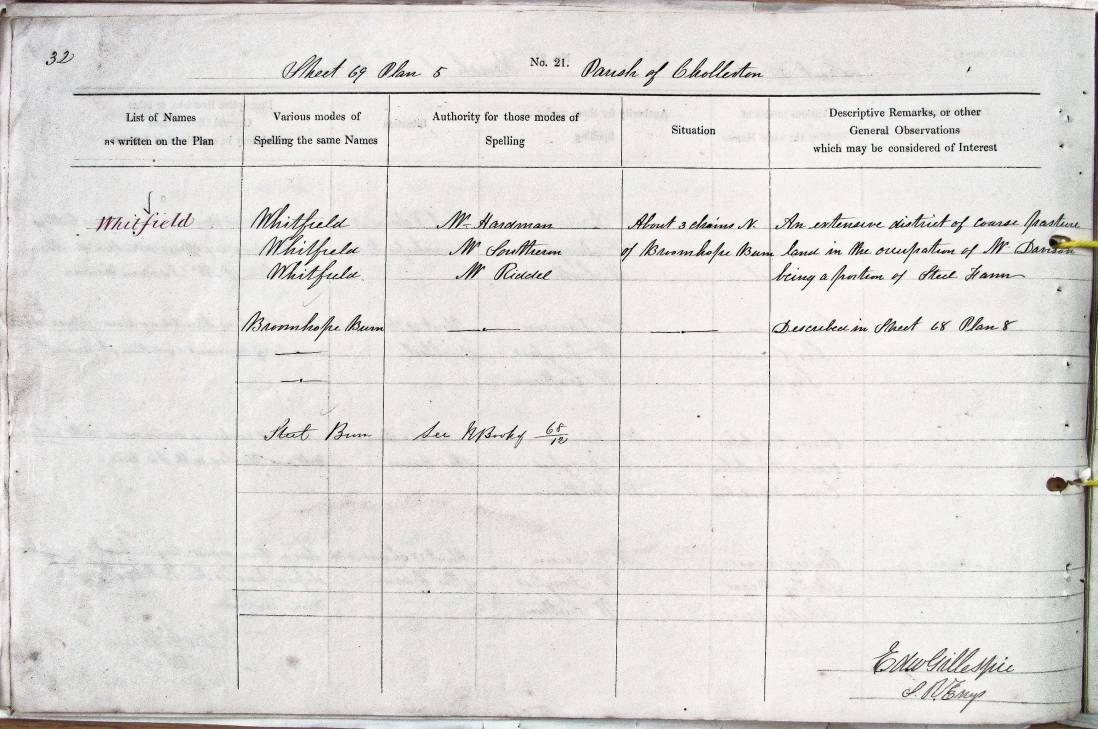 32
Sheet 69 Plan 5 No. 21. Parish of Chollerton
List of Names
as written on the Plan
Various modes of
Spelling the same Names
Authority for those modes of
Spelling
Situation
Descriptive Remarks, or other
General Observations
which may be considered of Interest
Whitfield Whitfield Mr Hardman About 3 chains N. An extensive district of coarse pasture
Whitfield Mr Southeron of Broomhope Burn land in the occupation of Mr Davison
Whitfield Mr Riddel being a portion of Steel Farm
Broomhope Burn Described in Sheet 68 Plan 8
Steel Burn See N Book of 68/12
Edw Gillespie
S. R. Engs